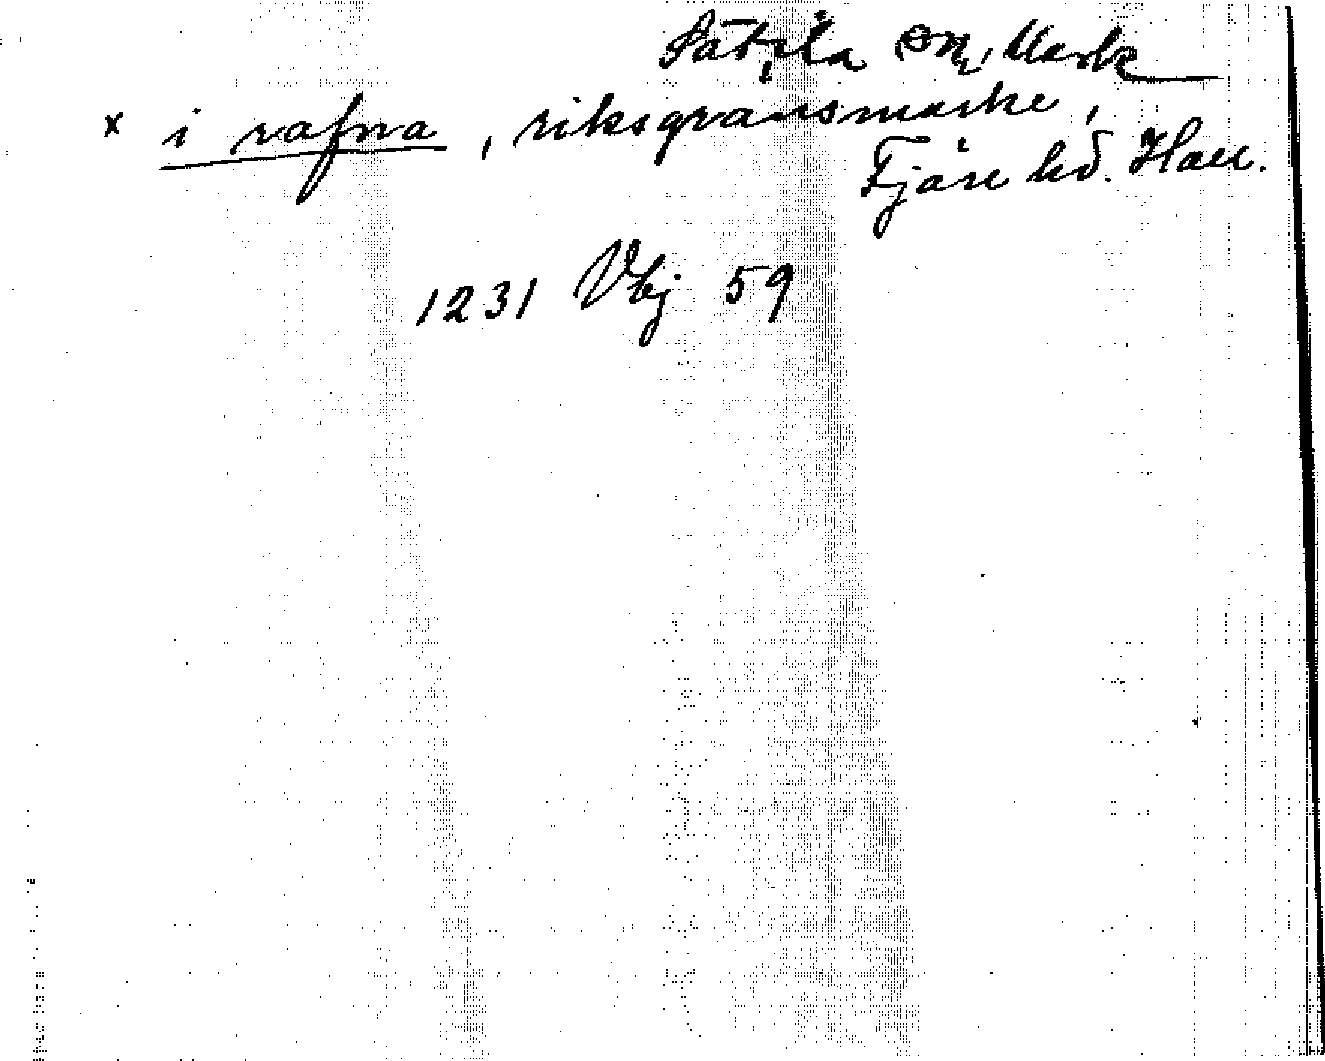 Sätila sn, Mark
x i rafna, riksgränsmärke,
Fjäre hd. Hall.
1231 Vbj 59